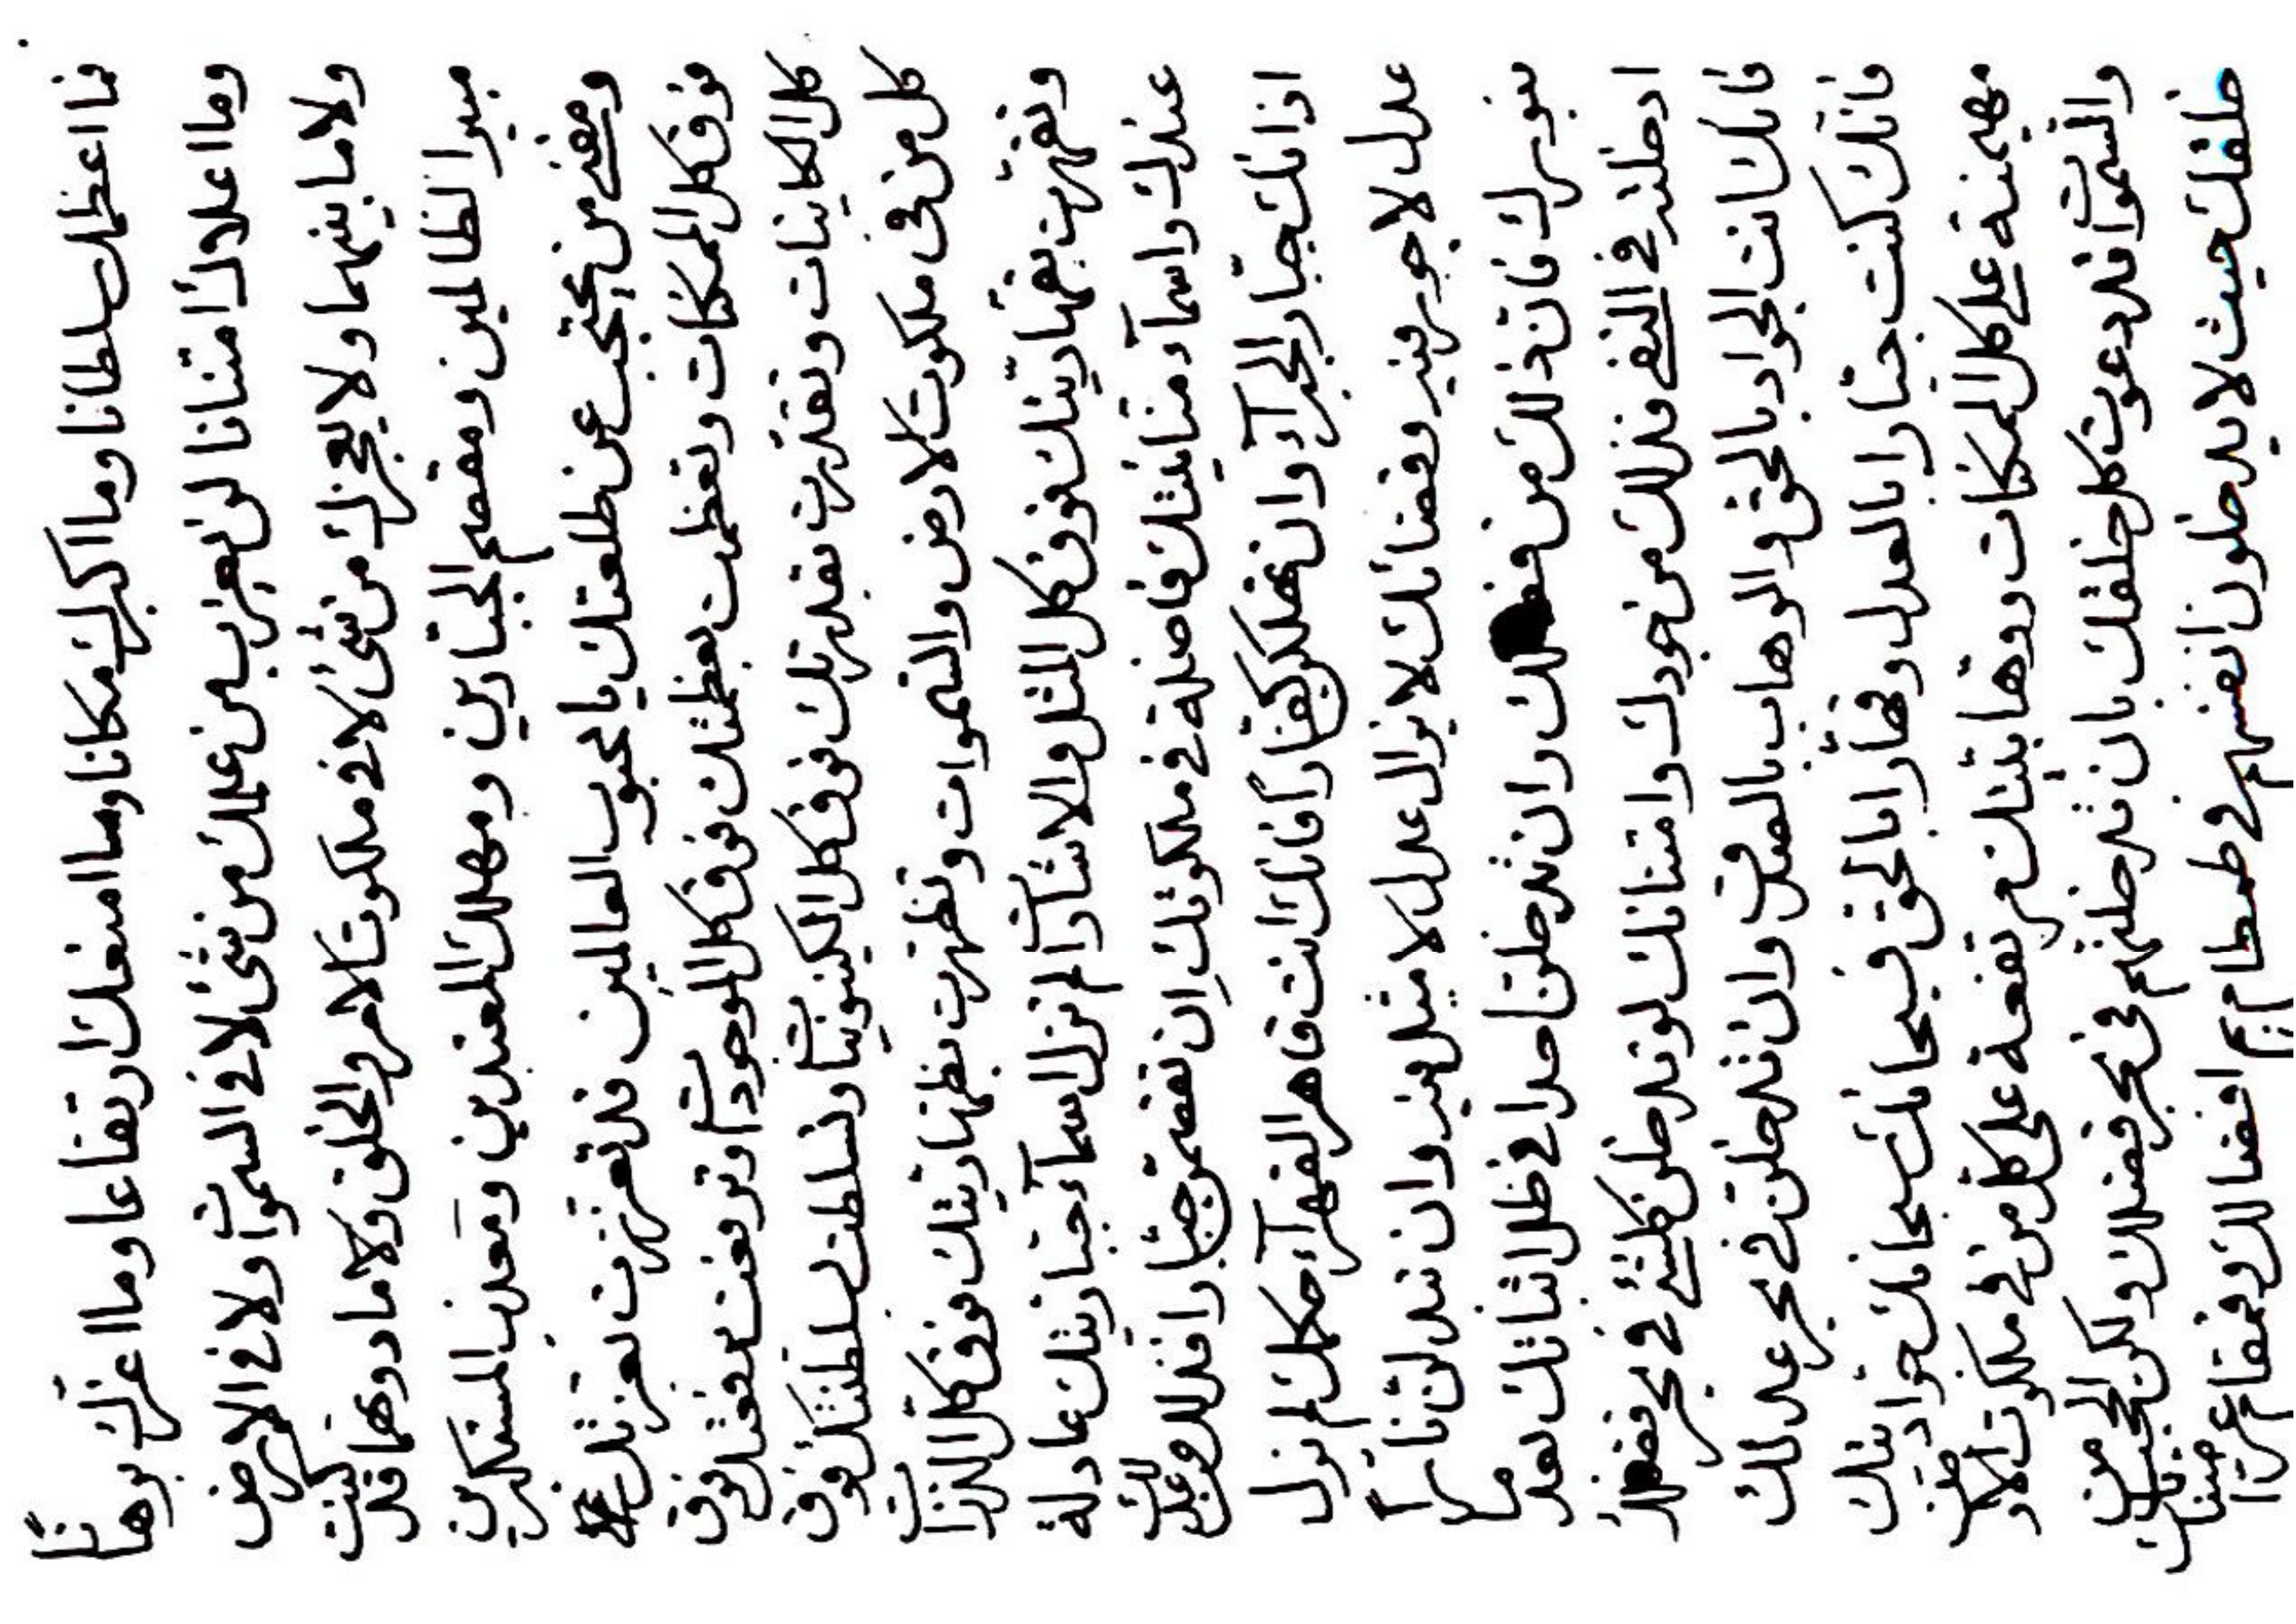 فما اعظمك سلطانا وما اكبرك مكانا وما امنعك ارتفاعا وما اعزك برهانا
وما اعلاك امتنانا لن يعزب من علمك من شئ لا في السموات ولا في الارض
ولا ما بينهما ولا يعجزك من شئ لا في ملكوت الامر والخلق ولا ما دونهما قد كنت
مبيرا لظالمين ومقصم الجبارين ومهلك المعتدين ومعذب المستكبرين
ومفني من يحتجب عن طلعتك يا محبوب العالمين قد تعززت بعززتك
فوق كل الممكنات وتعظمت بعظمتك فوق كل الموجودات وترفعت برفعتك فوق
كل الكاينات وتقدرت بقدرتك فوق كل الكينونيات وتسلطت بسلطنتك فوق
كل من في ملكوت الارض والسموات وتظهرت بظهاريتك فوق كل الذرات
وتقهرت بقهاريتك فوق كل المثل والاشارات لم تزل اسماء جباريتك عادلة
عندك واسماء منانيتك فاضلة في ملكوتك ان تقصمن جبارا فذلك عدلك
اذ انك جبار الجبراء وان تهلكن قهارا فانك انت قاهر القهراء حكمك لم يزل
عدل لا جور فيه وقضائك لا يزال عدل لا ميل فيه وان تبدلن نارا
بنورك فان ذلك من فضلك وان تدخلن احدا في ظل اثباتك بعد ما
ادخلته في النفي فذلك من جودك وامتنانك لو تدخلن كلشئ في بحر فضلك
فانك انت الجواد بالحق والوهاب بالفضل وان تدخلن في بحر عدلك
فانك كنت جبارا بالعدل وقهارا بالحق فسبحانك سبحانك جواديتك
مهيمنة على كل الممكنات ووهابيتك مرتفعة على كل من في ملكوت الارض
والسموات قد دعوت كل خلقك بان تدخلنهم في بحر فضلك ولكن المحتجبين من
خلقك حيث لا يدخلون انفسهم في طمطام يم افضالك وقمقام عز امتنانك